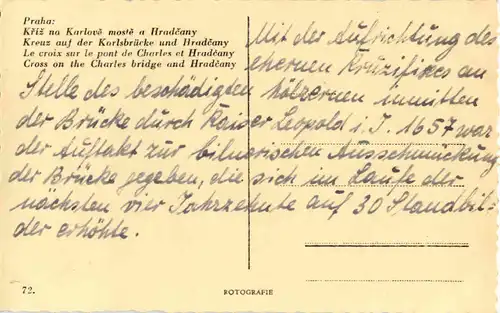 Praha:
Kříž na Karlově mostě a Hradčany
Kreuz auf der Korlsbrücke und Hradčany
Le croix sur le pont de Charles et Hradčany
Cross on the Charles bridge and Hradčany
Mit der Aufrichtung des
ehernen Kruzifixes an
Stelle des beschädigten hölzernen inmitten
der Brücke durch Kaiser Leopold i. J. 1657 war
der Auftakt zur bilnerischen Ausschmückung
der Brücke gegeben, die sich im Laufe der
nächsten vier Jahrzehnte auf 30 Standbil-
der erhöhte.
72.
ROTOGRAFIE